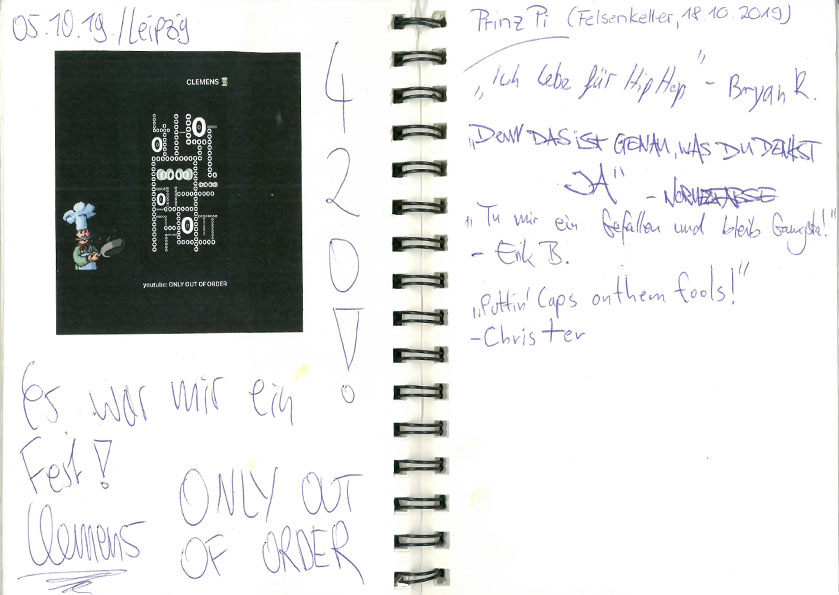 05.10.19/Leipzig
CLEMENS
youtube: ONLY OUT OF ORDER
420!
Es war mir ein
Fest!
Clemens
ONLY OUT
OF ORDER
Prinz Pi (Felsenkeller, 18.10.2019)
„Ich lebe für HipHop" - Bryan R.
„DENN DAS IST GENAU, WAS DU DENKST
JA" -
„Tu mir ein Gefallen und bleib Gangsta!"
- Erik B.
„Puttin' Caps onthem fools!"
-Christer